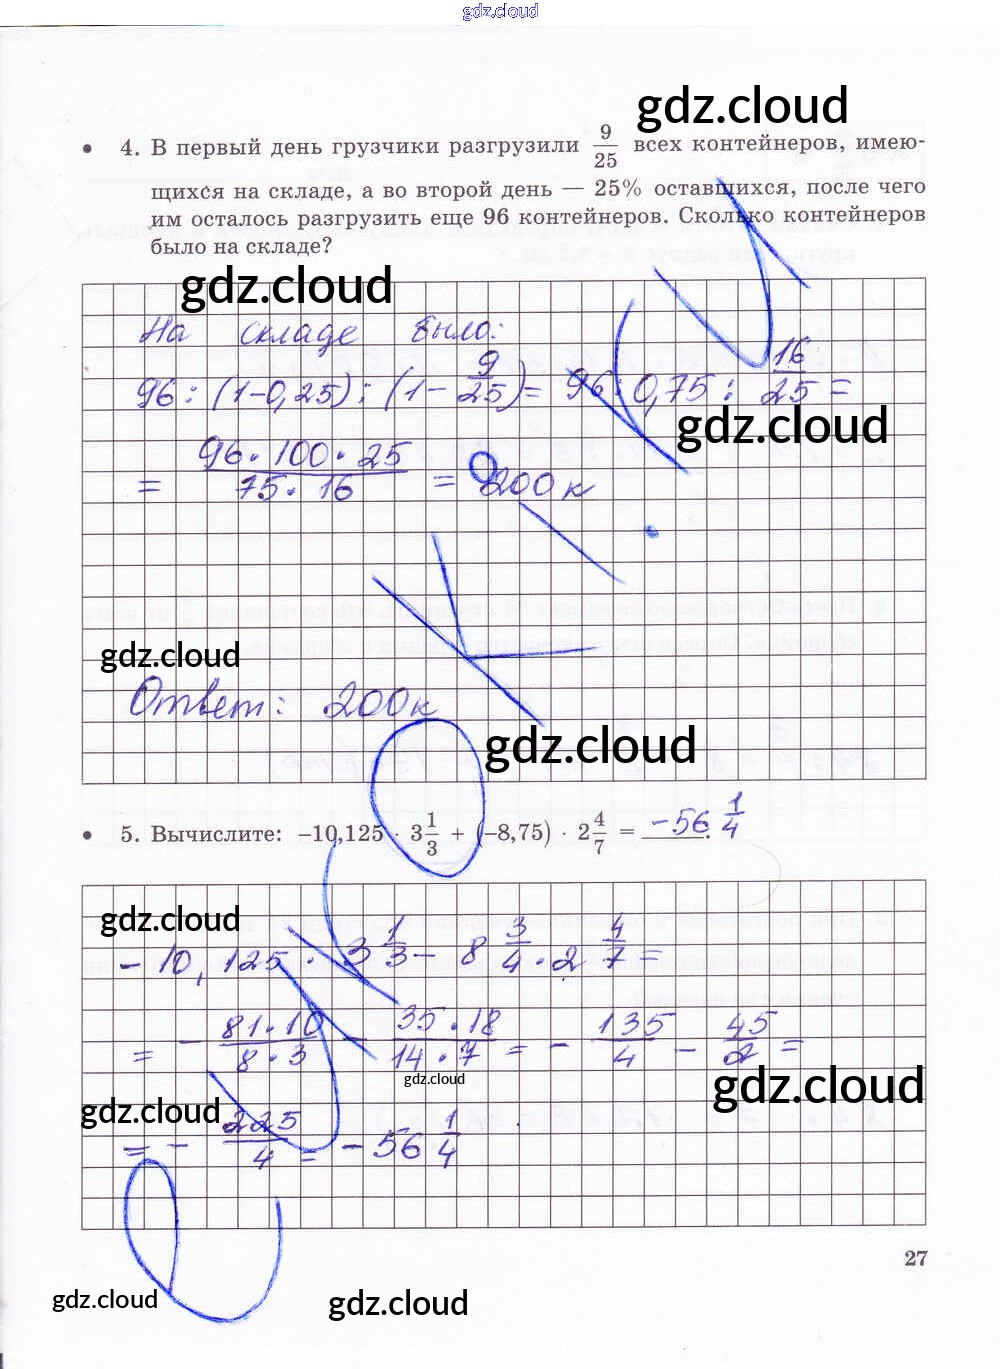 gdz.cloud
gdz.cloud
4. В первый день грузчики разгрузили 9/25 всех контейнеров, имею-
щихся на складе, а во второй день — 25% оставшихся, после чего
им осталось разгрузить еще 96 контейнеров. Сколько контейнеров
было на складе?
gdz.cloud
На складе было:
96 : (1-0,25) : (1 - 9/25) = 96 : 0,75 : 16/25 =
gdz.cloud
= 96·100·25 / 75·16 = 200 к
gdz.cloud
Ответ: 200 к
gdz.cloud
5. Вычислите: –10,125 · 3 1/3 + (–8,75) · 2 4/7 = -56 1/4.
gdz.cloud
- 10,125 · 3 1/3 - 8 3/4 · 2 4/7 =
= - 81·10 / 8·3 - 35·18 / 14·7 = - 135/4 - 45/2 =
gdz.cloud
gdz.cloud
gdz.cloud
= - 225/4 = -56 1/4
27
gdz.cloud
gdz.cloud